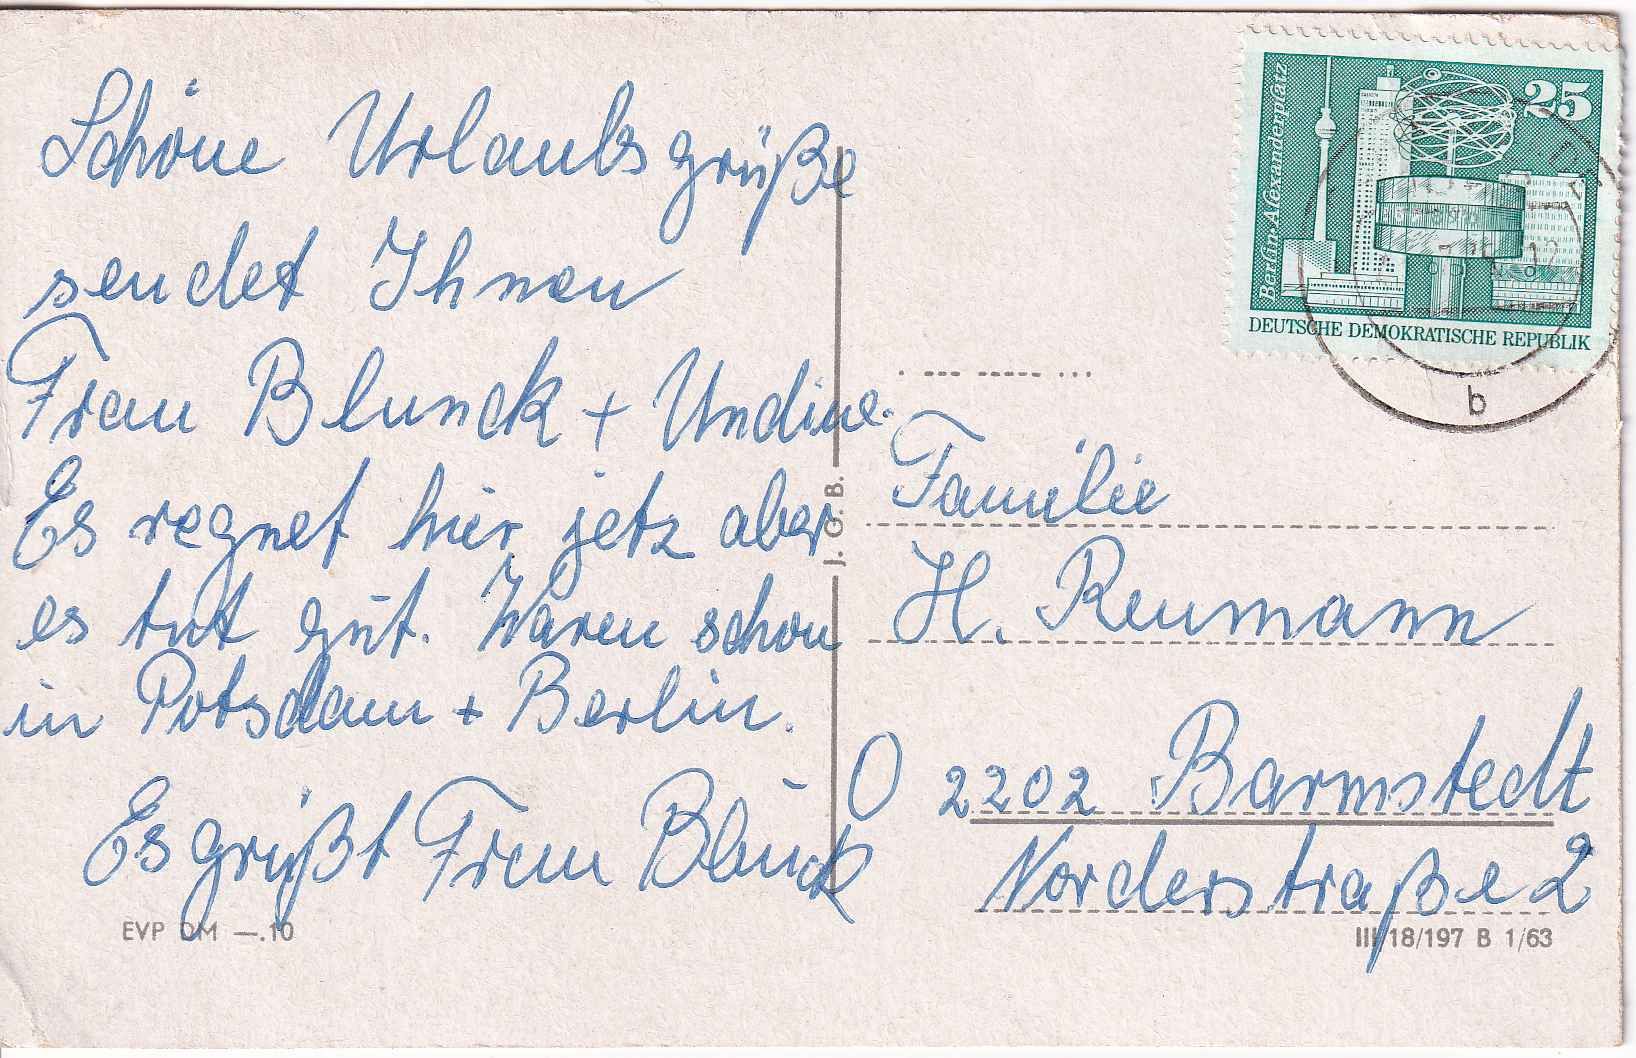 Schöne Urlaubsgrüße
sendet Ihnen
Frau Blunck + Undine.
Es regnet hier jetz aber
es tut gut. Waren schon
in Potsdam + Berlin.
Es grüßt Frau Blunck
EVP DM —.10
J. G. B.
Berlin-Alexanderplatz
25
DEUTSCHE DEMOKRATISCHE REPUBLIK
b
Familie
H. Reumann
O 2202 Barmstedt
Norderstraße 2
III/18/197 B 1/63